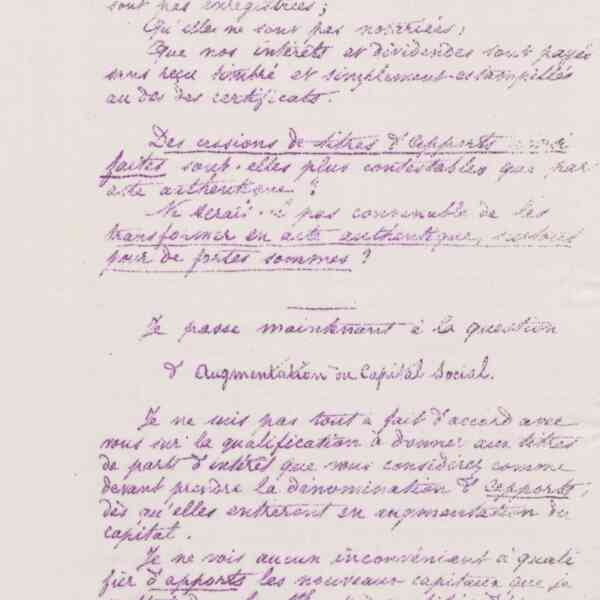 sont pas enregistrées;
Qu'elles ne sont pas notariées;
Que nos intérêts et dividendes sont payés
sans reçu timbré et simplement estampillés
au dos des certificats.
Des cessions de titres d'apports ainsi
faites sont-elles plus contestables que par
acte authentique?
Ne serait-il pas convenable de les
transformer en acte authentique, surtout
pour de fortes sommes?
Je passe maintenant à la question
d'Augmentation du Capital Social.
Je ne suis pas tout à fait d'accord avec
vous sur la qualification à donner aux titres
de part d'intérêt que vous considérez comme
devant prendre la dénomination d'apports;
dès qu'elles entreront en augmentation du
capital.
Je ne vois aucun inconvénient à quali
fier d'apports les nouveaux capitaux que